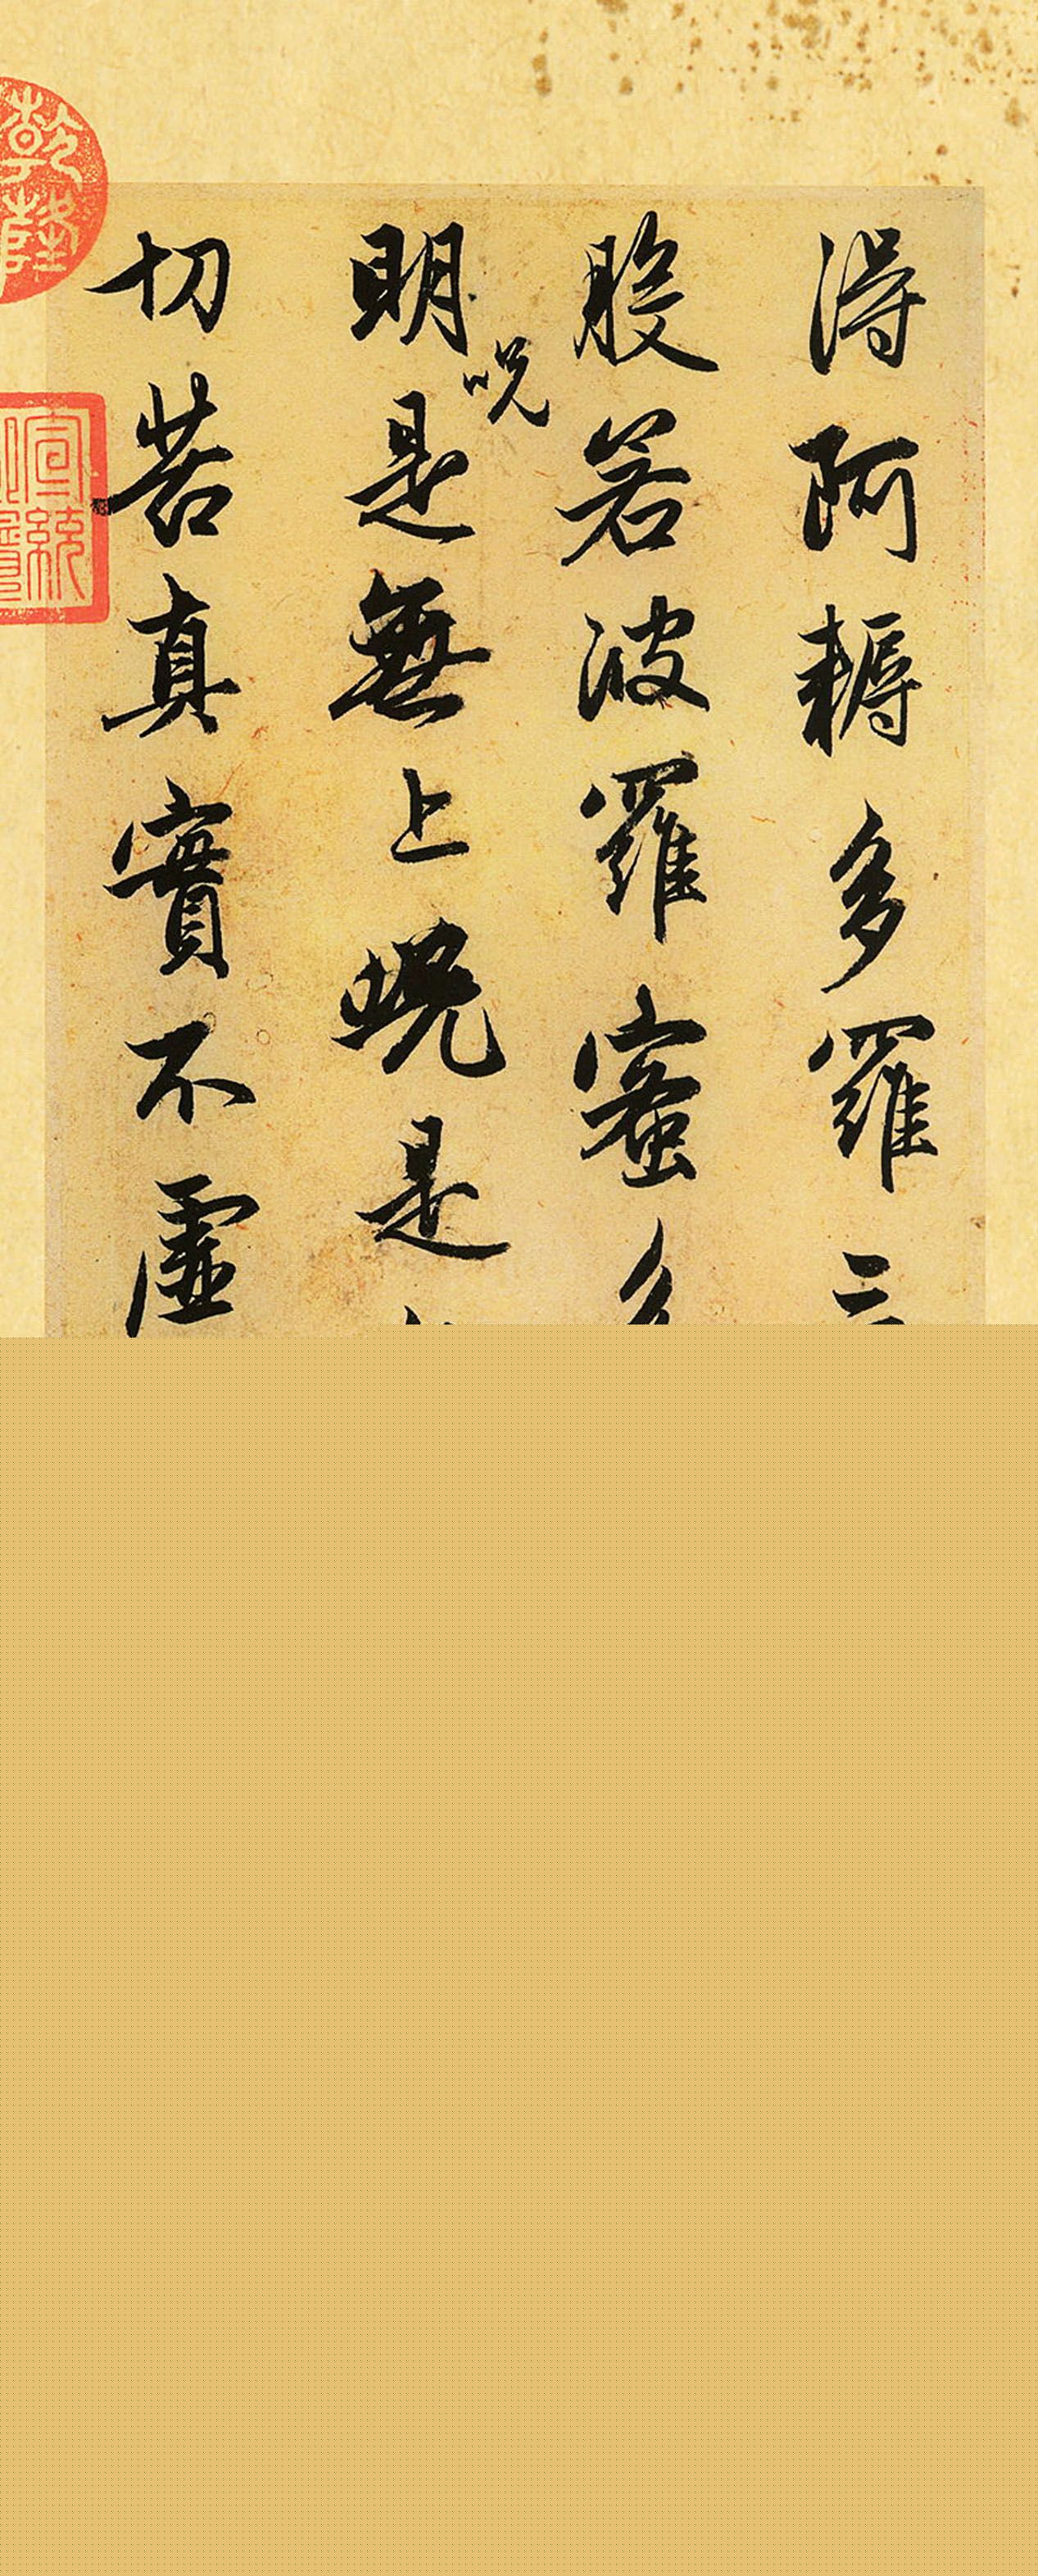 得阿耨多羅三
般若波羅蜜多
明呪是無上呪是
切苦真實不虛
乾隆
宣統